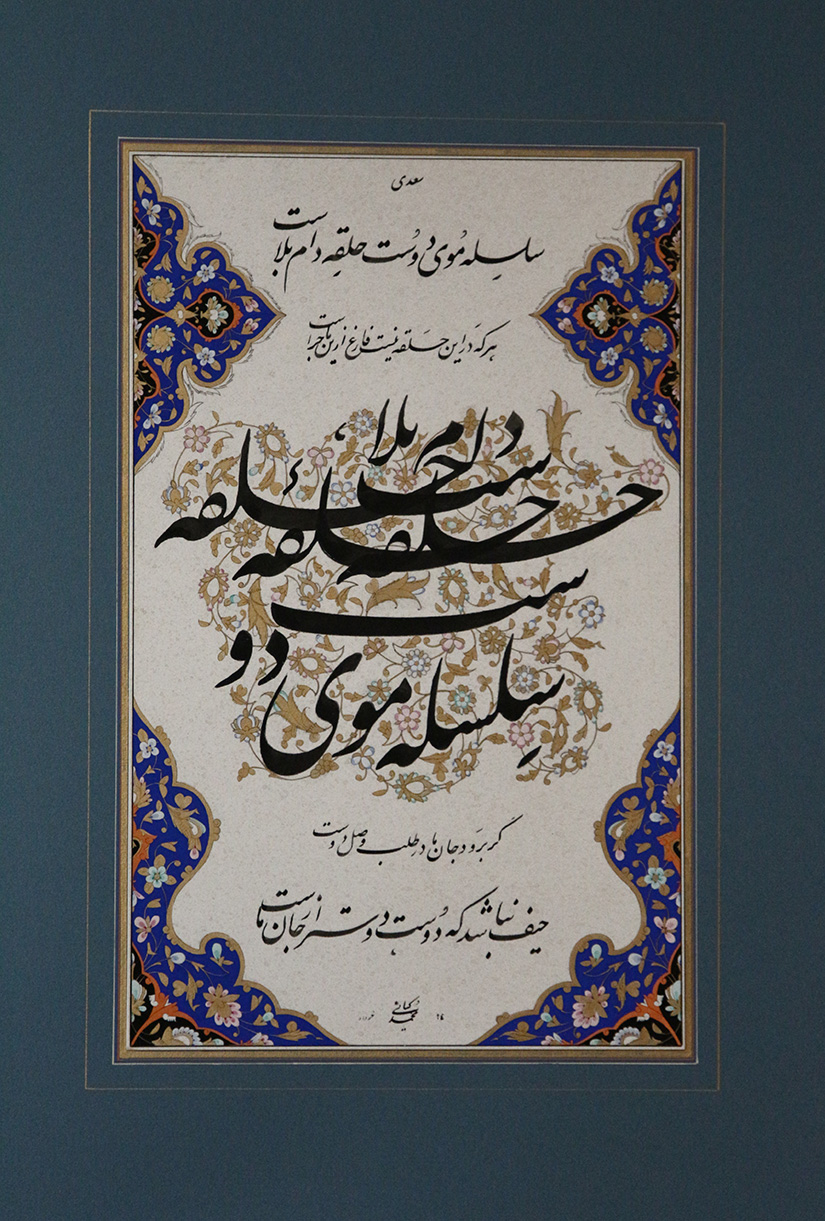 سعدی
سلسله موی دوست حلقه دام بلاست
هر که در این حلقه نیست فارغ از این ماجراست
دام بلا
ست حلقه
حلقه حلقه
ست
دو
سلسله موی
گر برود جان ما در طلب وصل دوست
حیف نباشد که دوست دوستر از جان ماست
محمد